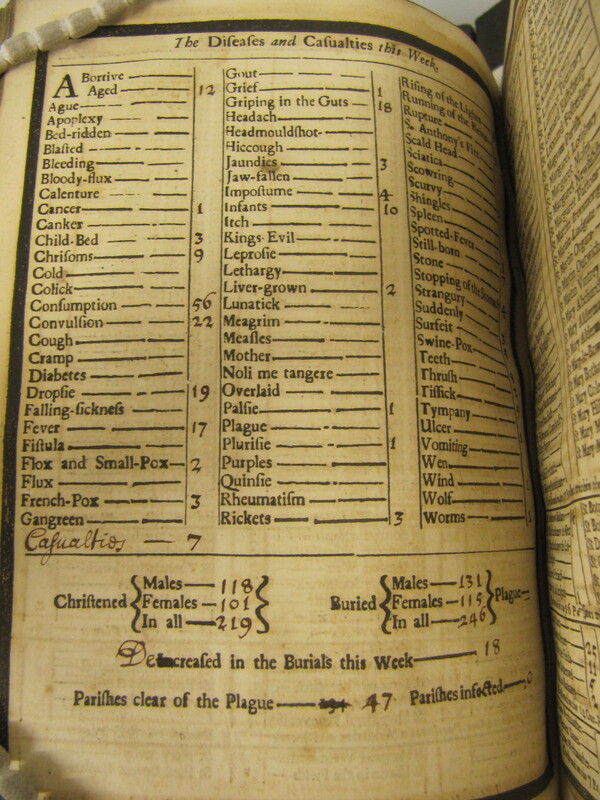 The Diſeaſes and Caſualties this Week.
ABortive
Aged 12
Ague
Apoplexy
Bed-ridden
Blaſted
Bleeding
Bloody-flux
Calenture
Cancer 1
Canker
Child-Bed 3
Chriſoms 9
Cold
Colick
Conſumption 56
Convulſion 22
Cough
Cramp
Diabetes
Dropſie 19
Falling-ſickneſs
Fever 17
Fiſtula
Flox and Small-Pox 2
Flux
French-Pox 3
Gangreen
Caſualties — 7
Gout
Grief 1
Griping in the Guts 18
Headach
Headmouldſhot
Hiccough
Jaundies 3
Jaw-fallen
Impoſtume 4
Infants 10
Itch
Kings-Evil
Leproſie
Lethargy
Liver-grown 2
Lunatick
Meagrim
Meaſles
Mother
Noli me tangere
Overlaid
Palſie 1
Plague
Pluriſie 1
Purples
Quinſie
Rheumatiſm
Rickets 3
Riſing of the Lights
Running of the
Rupture
S. Anthony's Fire
Scald Head
Sciatica
Scowring
Scurvy
Shingles
Spleen
Spotted-Fever
Still-born
Stone
Stopping of the Stomach
Strangury
Suddenly
Surfeit
Swine-Pox
Teeth
Thruſh
Tiſſick
Tympany
Ulcer
Vomiting
Wen
Wind
Wolf
Worms
Chriſtened
Males — 118
Females — 101
In all — 219
Buried
Males — 131
Females — 115
In all — 246
Plague
Decreaſed in the Burials this Week — 18
Pariſhes clear of the Plague — 47 Pariſhes infected — 0